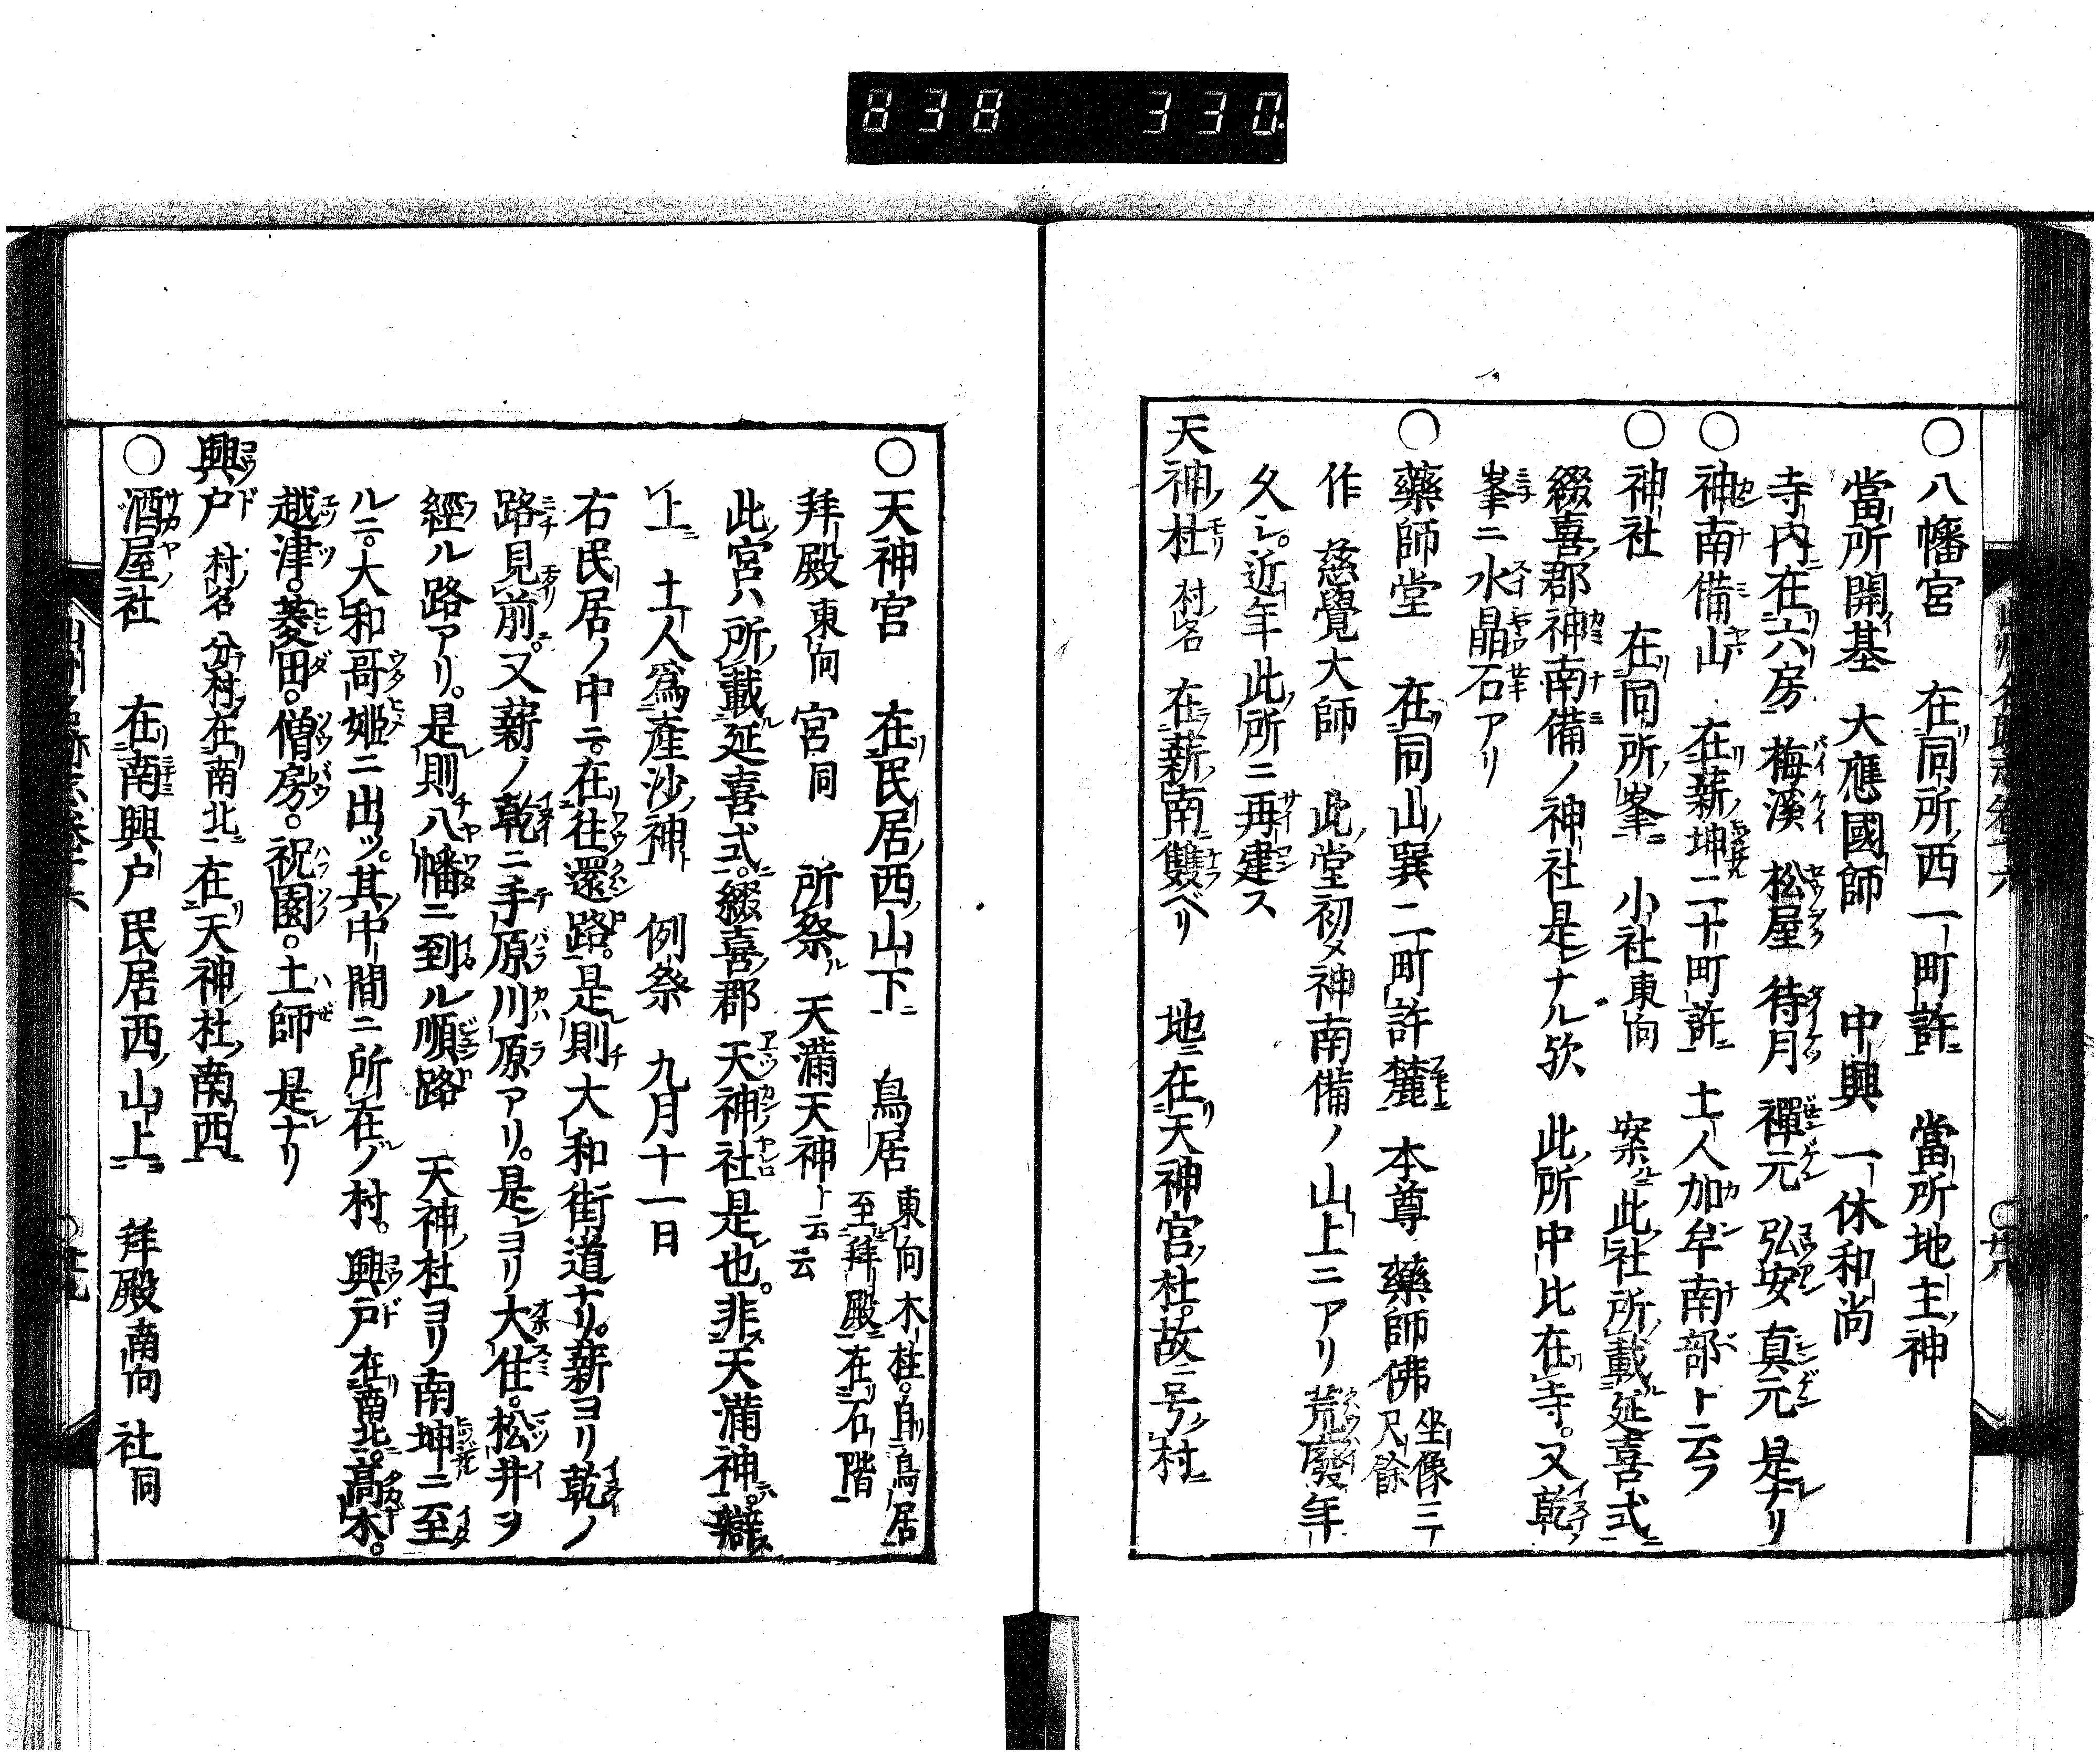 838 330
○八幡宮 在同所西一町許 當所地主神
當所開基 大應國師 中興 一休和尚
寺内在六房 梅溪 松屋 待月 禪元 弘安 真元 是ナリ
○神南備山 在薪坤二十町許 土人加牟南部ト云フ
○神社 在同所峯 小社東向 案此社所載延喜式
綴喜郡神南備ノ神社是ナル欤 此所中比在寺。又乾ノ
峯ニ水晶石アリ
○藥師堂 在同山巽二町許麓 本尊 藥師佛 坐像三尺餘
作 慈覺大師 此堂初メ神南備ノ山上ニアリ荒廢年
久シ。近年此所ニ再建ス
天神杜 村名 在薪南雙ベリ 地ニ在天神宮杜。故ニ号村
○天神宮 在民居西山下 鳥居 東向木柱。自鳥居至拜殿在石階
拜殿 東向 宮同 所祭 天滿天神ト云云
此宮ハ所載延喜式。綴喜郡 天神社是也。非天滿神。辯
上 土人爲産沙神 例祭 九月十一日
右民居ノ中ニ。在往還路。是則大和街道ナリ。薪ヨリ乾ノ
路見前。又薪ノ乾ニ手原川原アリ。是ヨリ大住。松井ヲ
經ル路アリ。是則八幡ニ到ル順路 天神杜ヨリ南坤ニ至
ルニ。大和哥姫ニ出ツ。其中間ニ所在ノ村。興戸在南北。高木。
越津。菱田。僧房。祝園。土師 是ナリ
興戸 村名 分村在南北 在天神杜南西
○酒屋社 在南興戸民居西山上 拜殿 南向 社同